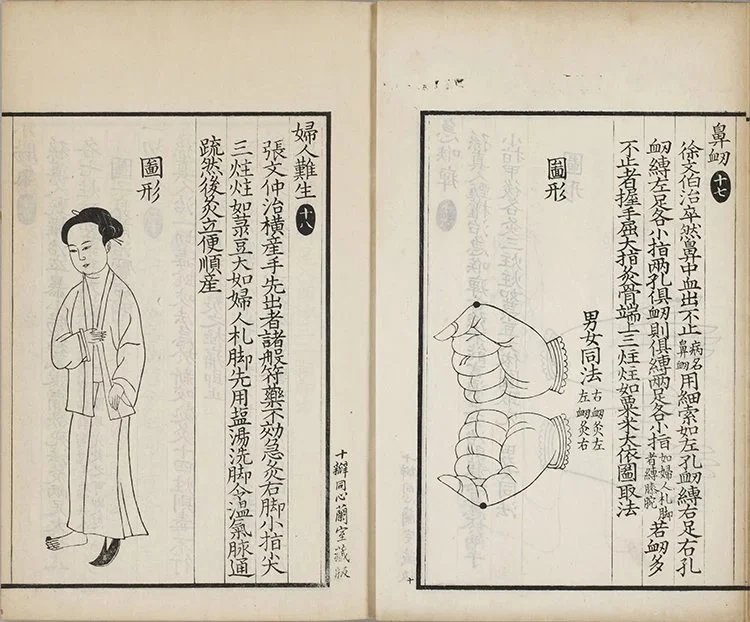 鼻衂 十七
徐文伯治卒然鼻中血出不止 病名鼻衂 用細索如左孔衂縛右足右孔
衂縛左足各小指兩孔俱衂則俱縛兩足各小指 如婦人札脚者縛膝腕 若衂多
不止者握手屈大指灸骨端上三炷炷如粟米大依圖取法
男女同法 右衂灸左 左衂灸右
圖形
十瓣同心蘭室藏版
婦人難生 十八
張文仲治橫產手先出者諸般符藥不効急灸右脚小指尖
三炷炷如菉豆大如婦人札脚先用塩湯洗脚令溫氣脉通
疏然後灸立便順產
圖形